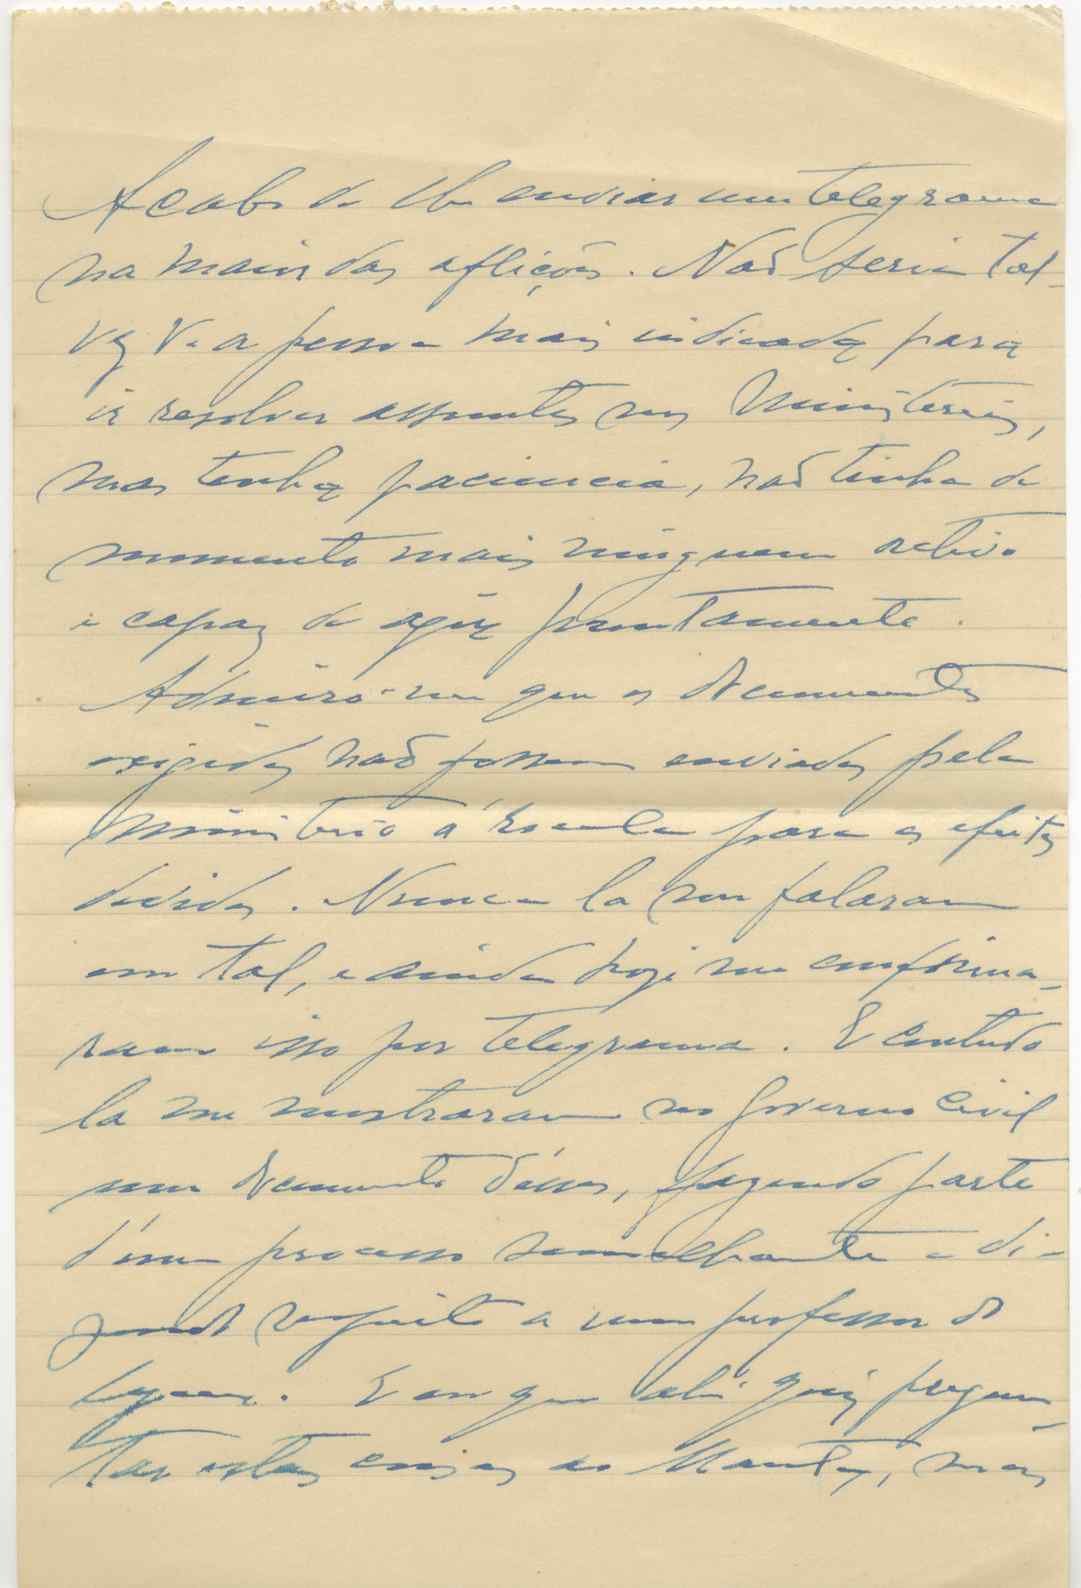 Acabo de lhe enviar um telegrama
na maior das aflições. Não seria tal-
vez V. a pessoa mais indicada para
ir resolver assuntos nos Ministerios,
mas tenha paciencia, não tinha de
momento mais ninguem activo
e capaz de agir prontamente.
Admiro-me que os documentos
exigidos não fossem enviados pelo
ministerio á Escola para os efeitos
devidos. Nunca la me falaram
em tal, e ainda hoje me confirma-
ram isso por telegrama. E contudo
la me mostraram no Governo Civil
um documento d'esses, fazendo parte
d'um processo semelhante e di-
zendo respeito a um professor do
Lyceu. E eu que ali quiz pregun-
tar estas coisas ao, mas